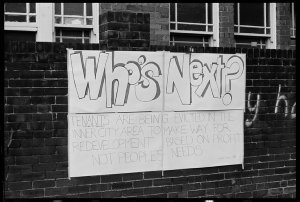 Who's Next?
TENANTS ARE BEING EVICTED IN THE
INNER CITY AREA TO MAKE WAY FOR
REDEVELOPMENT BASED ON PROFIT
NOT PEOPLES NEEDS